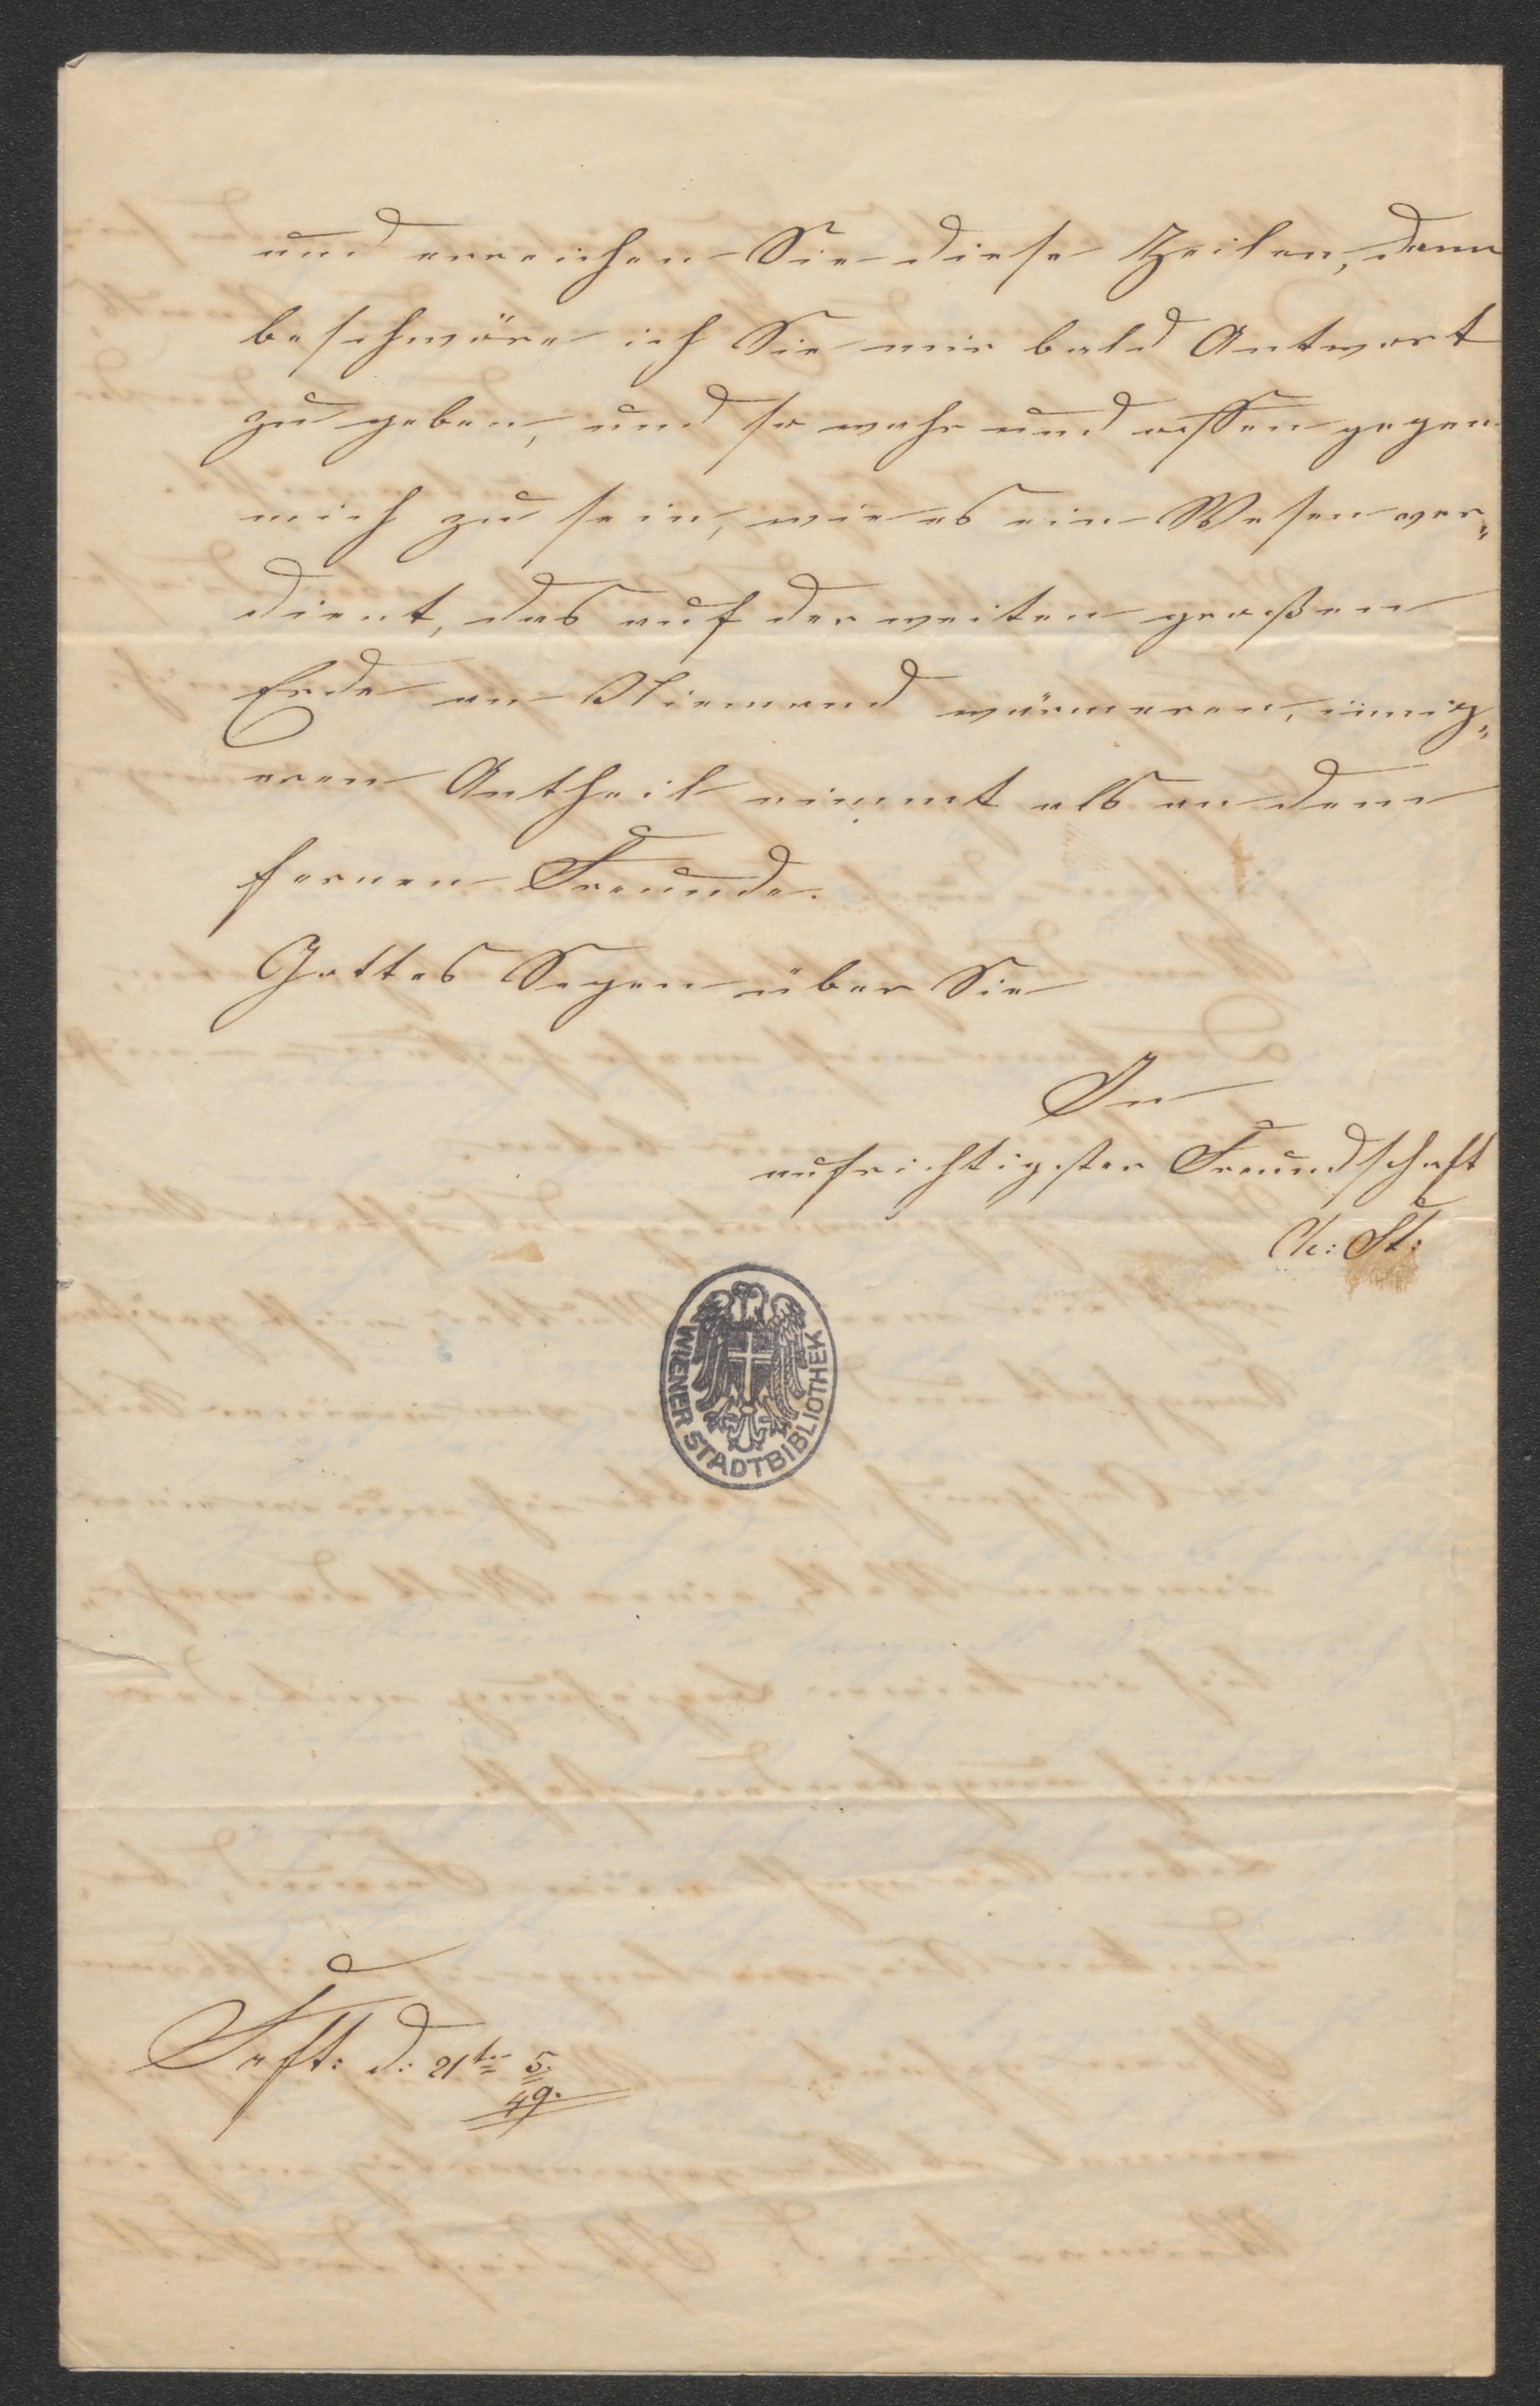 und erreichen Sie diese Zeilen, dann
beschwöre ich Sie mir bald Antwort
zu geben, und so wahr und offen gegen
mich zu sein, wie es ein Wesen ver„
dient, das auf der weiten großen
Erde an Niemand wärmeren, innig„
eren Antheil nimmt als an dem
fernen Freunde.
Gottes Segen über Sie
In
aufrichtigster Freundschaft
Ch: St:
WIENER STADTBIBLIOTHEK
d: 21t 5.
49.